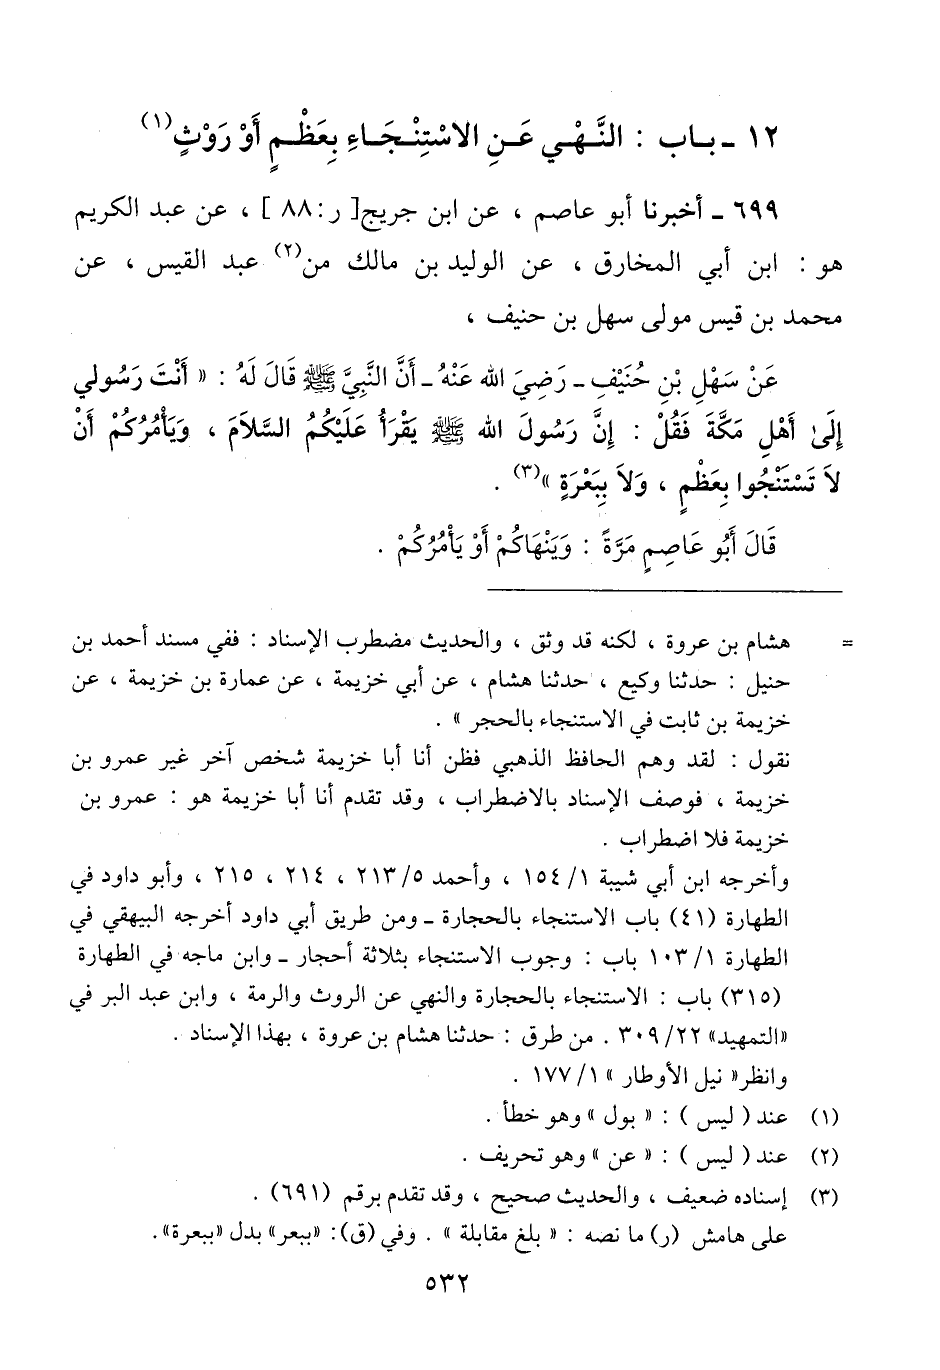 ١٢ ـ بـاب : النَّـهْـي عَـنِ الاسْتِنْـجَـاءِ بِعَظْـمٍ أَوْ رَوْثٍ(١)
٦٩٩ ـ أخبرنا أبو عاصم ، عن ابن جريج[ ر: ٨٨ ] ، عن عبد الكريم
هو : ابن أبي المخارق ، عن الوليد بن مالك من(٢) عبد القيس ، عن
محمد بن قيس مولى سهل بن حنيف ،
عَنْ سَهْلِ بْنِ حُنَيْفٍ ـ رَضِيَ الله عَنْهُ ـ أَنَّ النَّبِيَّ ﷺ قَالَ لَهُ : « أَنْتَ رَسُولي
إِلَىٰ أَهْلِ مَكَّةَ فَقُلْ : إِنَّ رَسُولَ الله ﷺ يَقْرَأُ عَلَيْكُمُ السَّلاَمَ ، وَيَأْمُرُكُمْ أَنْ
لاَ تَسْتَنْجُوا بِعَظْمٍ ، وَلاَ بِبَعْرَةٍ »(٣) .
قَالَ أَبُو عَاصِمٍ مَرَّةً : وَيَنْهَاكُمْ أَوْ يَأْمُرُكُمْ .
= هشام بن عروة ، لكنه قد وثق ، والحديث مضطرب الإسناد : ففي مسند أحمد بن
حنيل : حدثنا وكيع ، حدثنا هشام ، عن أبي خزيمة ، عن عمارة بن خزيمة ، عن
خزيمة بن ثابت في الاستنجاء بالحجر » .
نقول : لقد وهم الحافظ الذهبي فظن أنا أبا خزيمة شخص آخر غير عمرو بن
خزيمة ، فوصف الإسناد بالاضطراب ، وقد تقدم أنا أبا خزيمة هو : عمرو بن
خزيمة فلا اضطراب .
وأخرجه ابن أبي شيبة ١/ ١٥٤ ، وأحمد ٥/ ٢١٣ ، ٢١٤ ، ٢١٥ ، وأبو داود في
الطهارة (٤١) باب الاستنجاء بالحجارة ـ ومن طريق أبي داود أخرجه البيهقي في
الطهارة ١/ ١٠٣ باب : وجوب الاستنجاء بثلاثة أحجار ـ وابن ماجه في الطهارة
(٣١٥) باب : الاستنجاء بالحجارة والنهي عن الروث والرمة ، وابن عبد البر في
«التمهيد» ٢٢/ ٣٠٩ . من طرق : حدثنا هشام بن عروة ، بهذا الإسناد .
وانظر« نيل الأوطار » ١/ ١٧٧ .
(١) عند ( ليس ) : « بول » وهو خطأ .
(٢) عند ( ليس ) : « عن » وهو تحريف .
(٣) إسناده ضعيف ، والحديث صحيح ، وقد تقدم برقم (٦٩١) .
على هامش (ر) ما نصه : « بلغ مقابلة » . وفي (ق): «ببعر» بدل «ببعرة».
٥٣٢